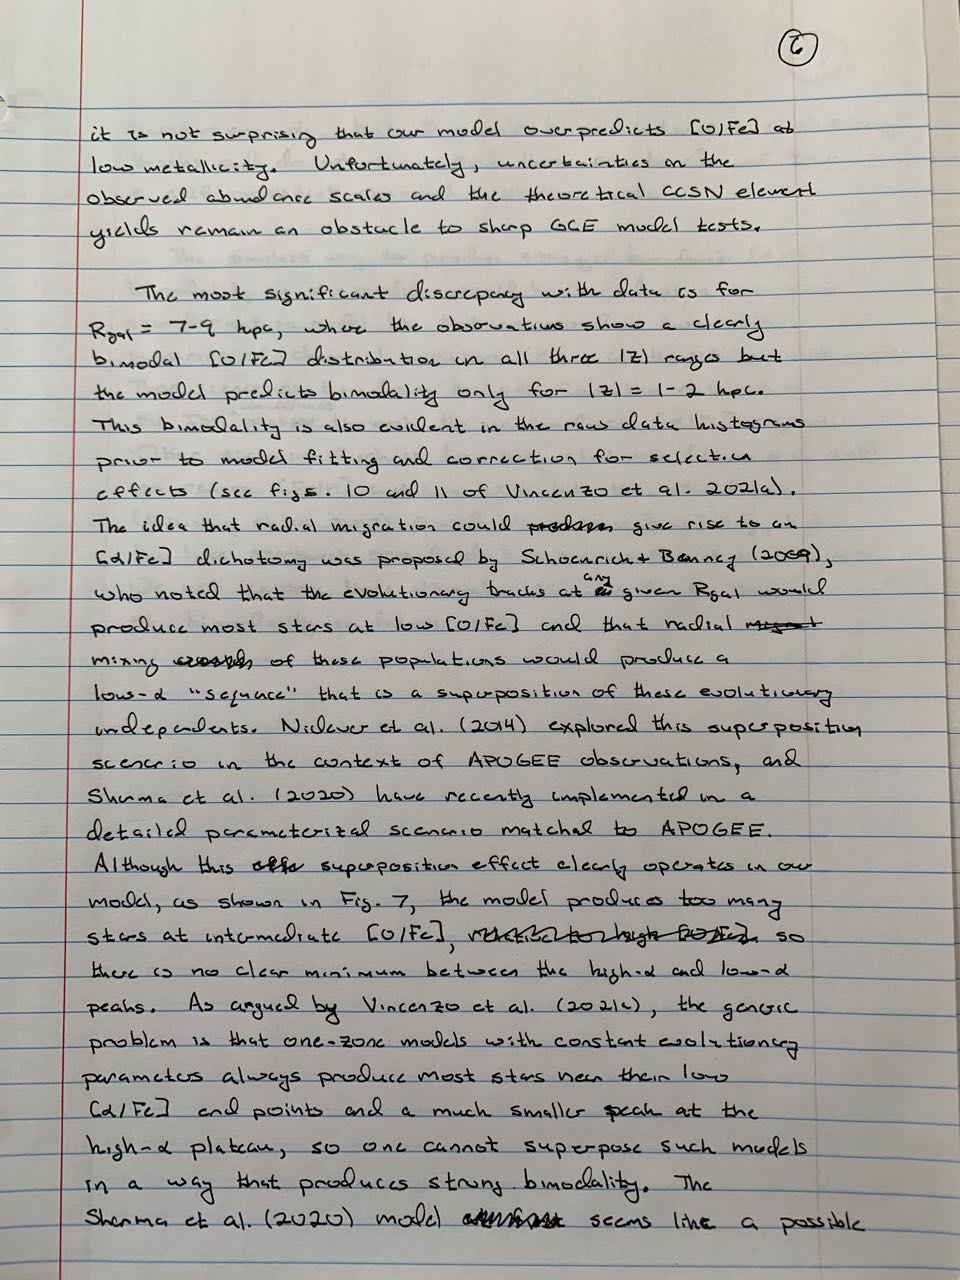 6
it is not surprising that our model overpredicts [O/Fe] at
low metallicity. Unfortunately, uncertainties on the
observed abundance scales and the theoretical CCSN element
yields remain an obstacle to sharp GCE model tests.
The most significant discrepancy with data is for
Rgal = 7-9 kpc, where the observations show a clearly
bimodal [O/Fe] distribution in all three |Z| ranges but
the model predicts bimodality only for |Z| = 1-2 kpc.
This bimodality is also evident in the raw data histograms
prior to model fitting and correction for selection
effects (see figs. 10 and 11 of Vincenzo et al. 2021a).
The idea that radial migration could give rise to an
[α/Fe] dichotomy was proposed by Schoenrich + Binney (2009),
who noted that the evolutionary tracks at any given Rgal would
produce most stars at low [O/Fe] and that radial
mixing of these populations would produce a
low-α "sequence" that is a superposition of these evolutionary
endpoints. Nidever et al. (2014) explored this superposition
scenario in the context of APOGEE observations, and
Sharma et al. (2020) have recently implemented in a
detailed parameterized scenario matched to APOGEE.
Although this superposition effect clearly operates in our
model, as shown in Fig. 7, the model produces too many
stars at intermediate [O/Fe], so
there is no clear minimum between the high-α and low-α
peaks. As argued by Vincenzo et al. (2021c), the generic
problem is that one-zone models with constant evolutionary
parameters always produce most stars near their low
[α/Fe] end points and a much smaller peak at the
high-α plateau, so one cannot superpose such models
in a way that produces strong bimodality. The
Sharma et al. (2020) model seems like a possible